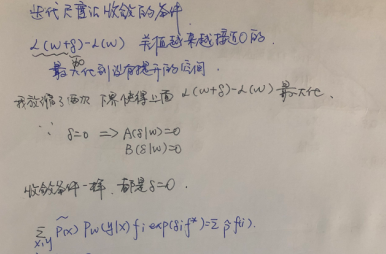 迭代尺度法收敛的条件
L(w+δ)-L(w) 差值越来越接近0的.
最大化到没有提升的空间.
我放缩了两次 下界使得上面 L(w+δ)-L(w) 最大化.
∵ δ=0 ⇒ A(δ|w)=0
B(δ|w)=0
收敛条件一样, 都是δ=0.
Σ_{x,y} P̃(x) Pw(y|x) fi exp(δi f^*)=Σ p̃ f(i).